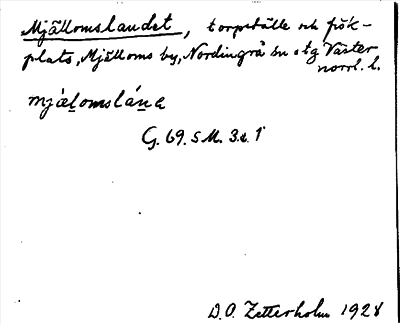 Mjällomslandet, torpställe och fisk-
plats, Mjälloms by, Nordingrå sn o tg Väster
norrl. l.
mjæ̀l̲omslán̲a
G. 69. S M. 3.d. 1
D.O. Zetterholm 1928